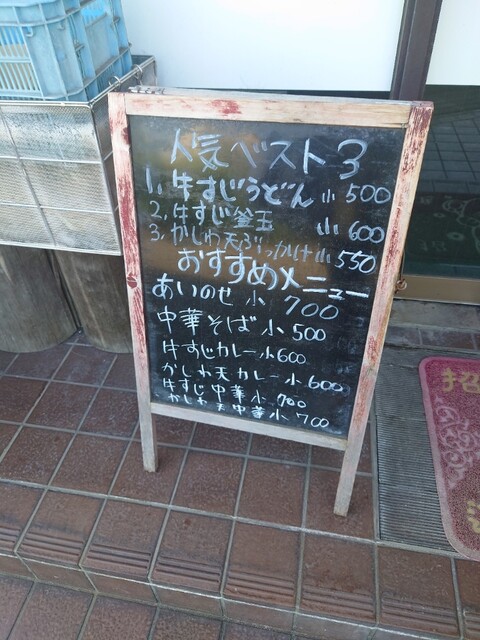 人気ベスト3
1. 牛すじうどん 小 500
2. 牛すじ釜玉 小 600
3. かしわ天ぶっかけ 小 550
おすすめメニュー
あいのせ 小 700
中華そば 小 500
牛すじカレー 小 600
かしわ天カレー 小 600
牛すじ中華 小 700
かしわ天中華 小 700
招